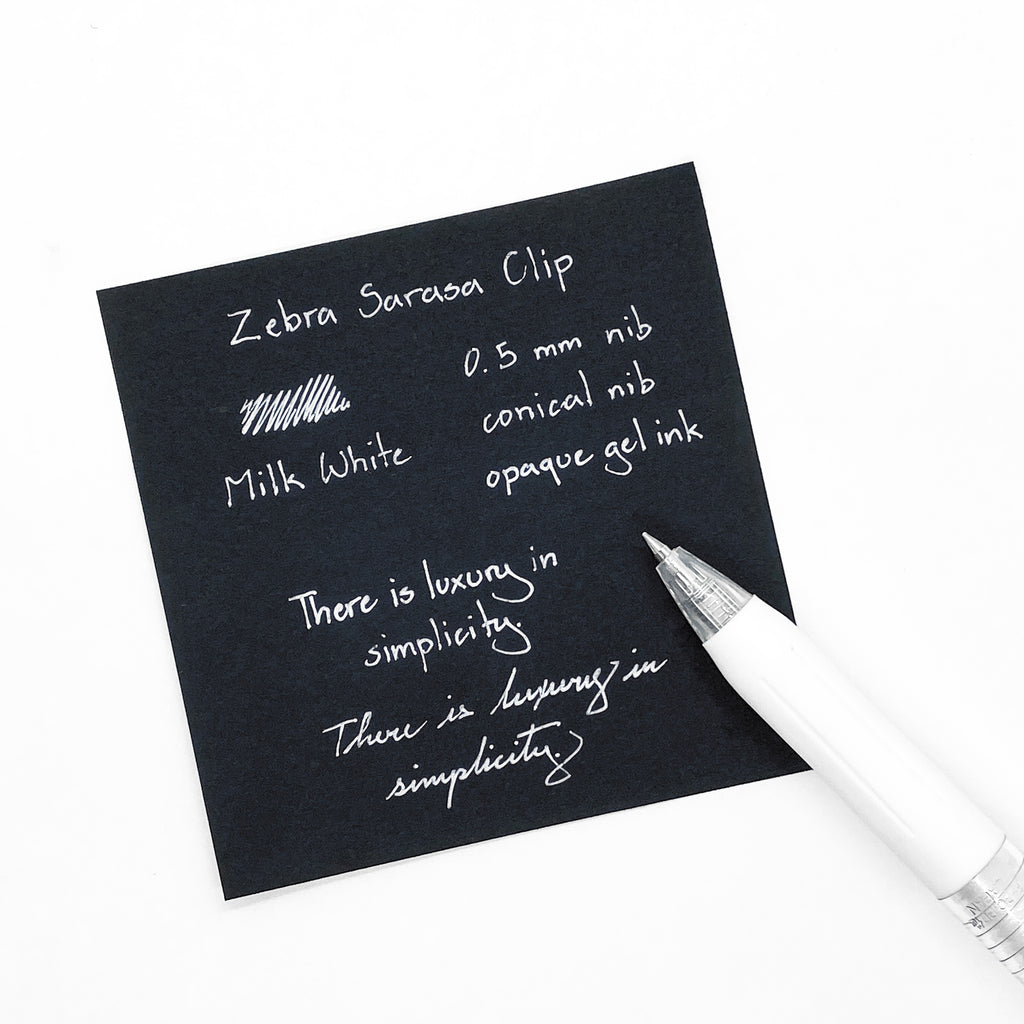 Zebra Sarasa Clip
0.5 mm nib
conical nib
opaque gel ink
Milk White
There is luxury in
simplicity.
There is luxury in
simplicity.